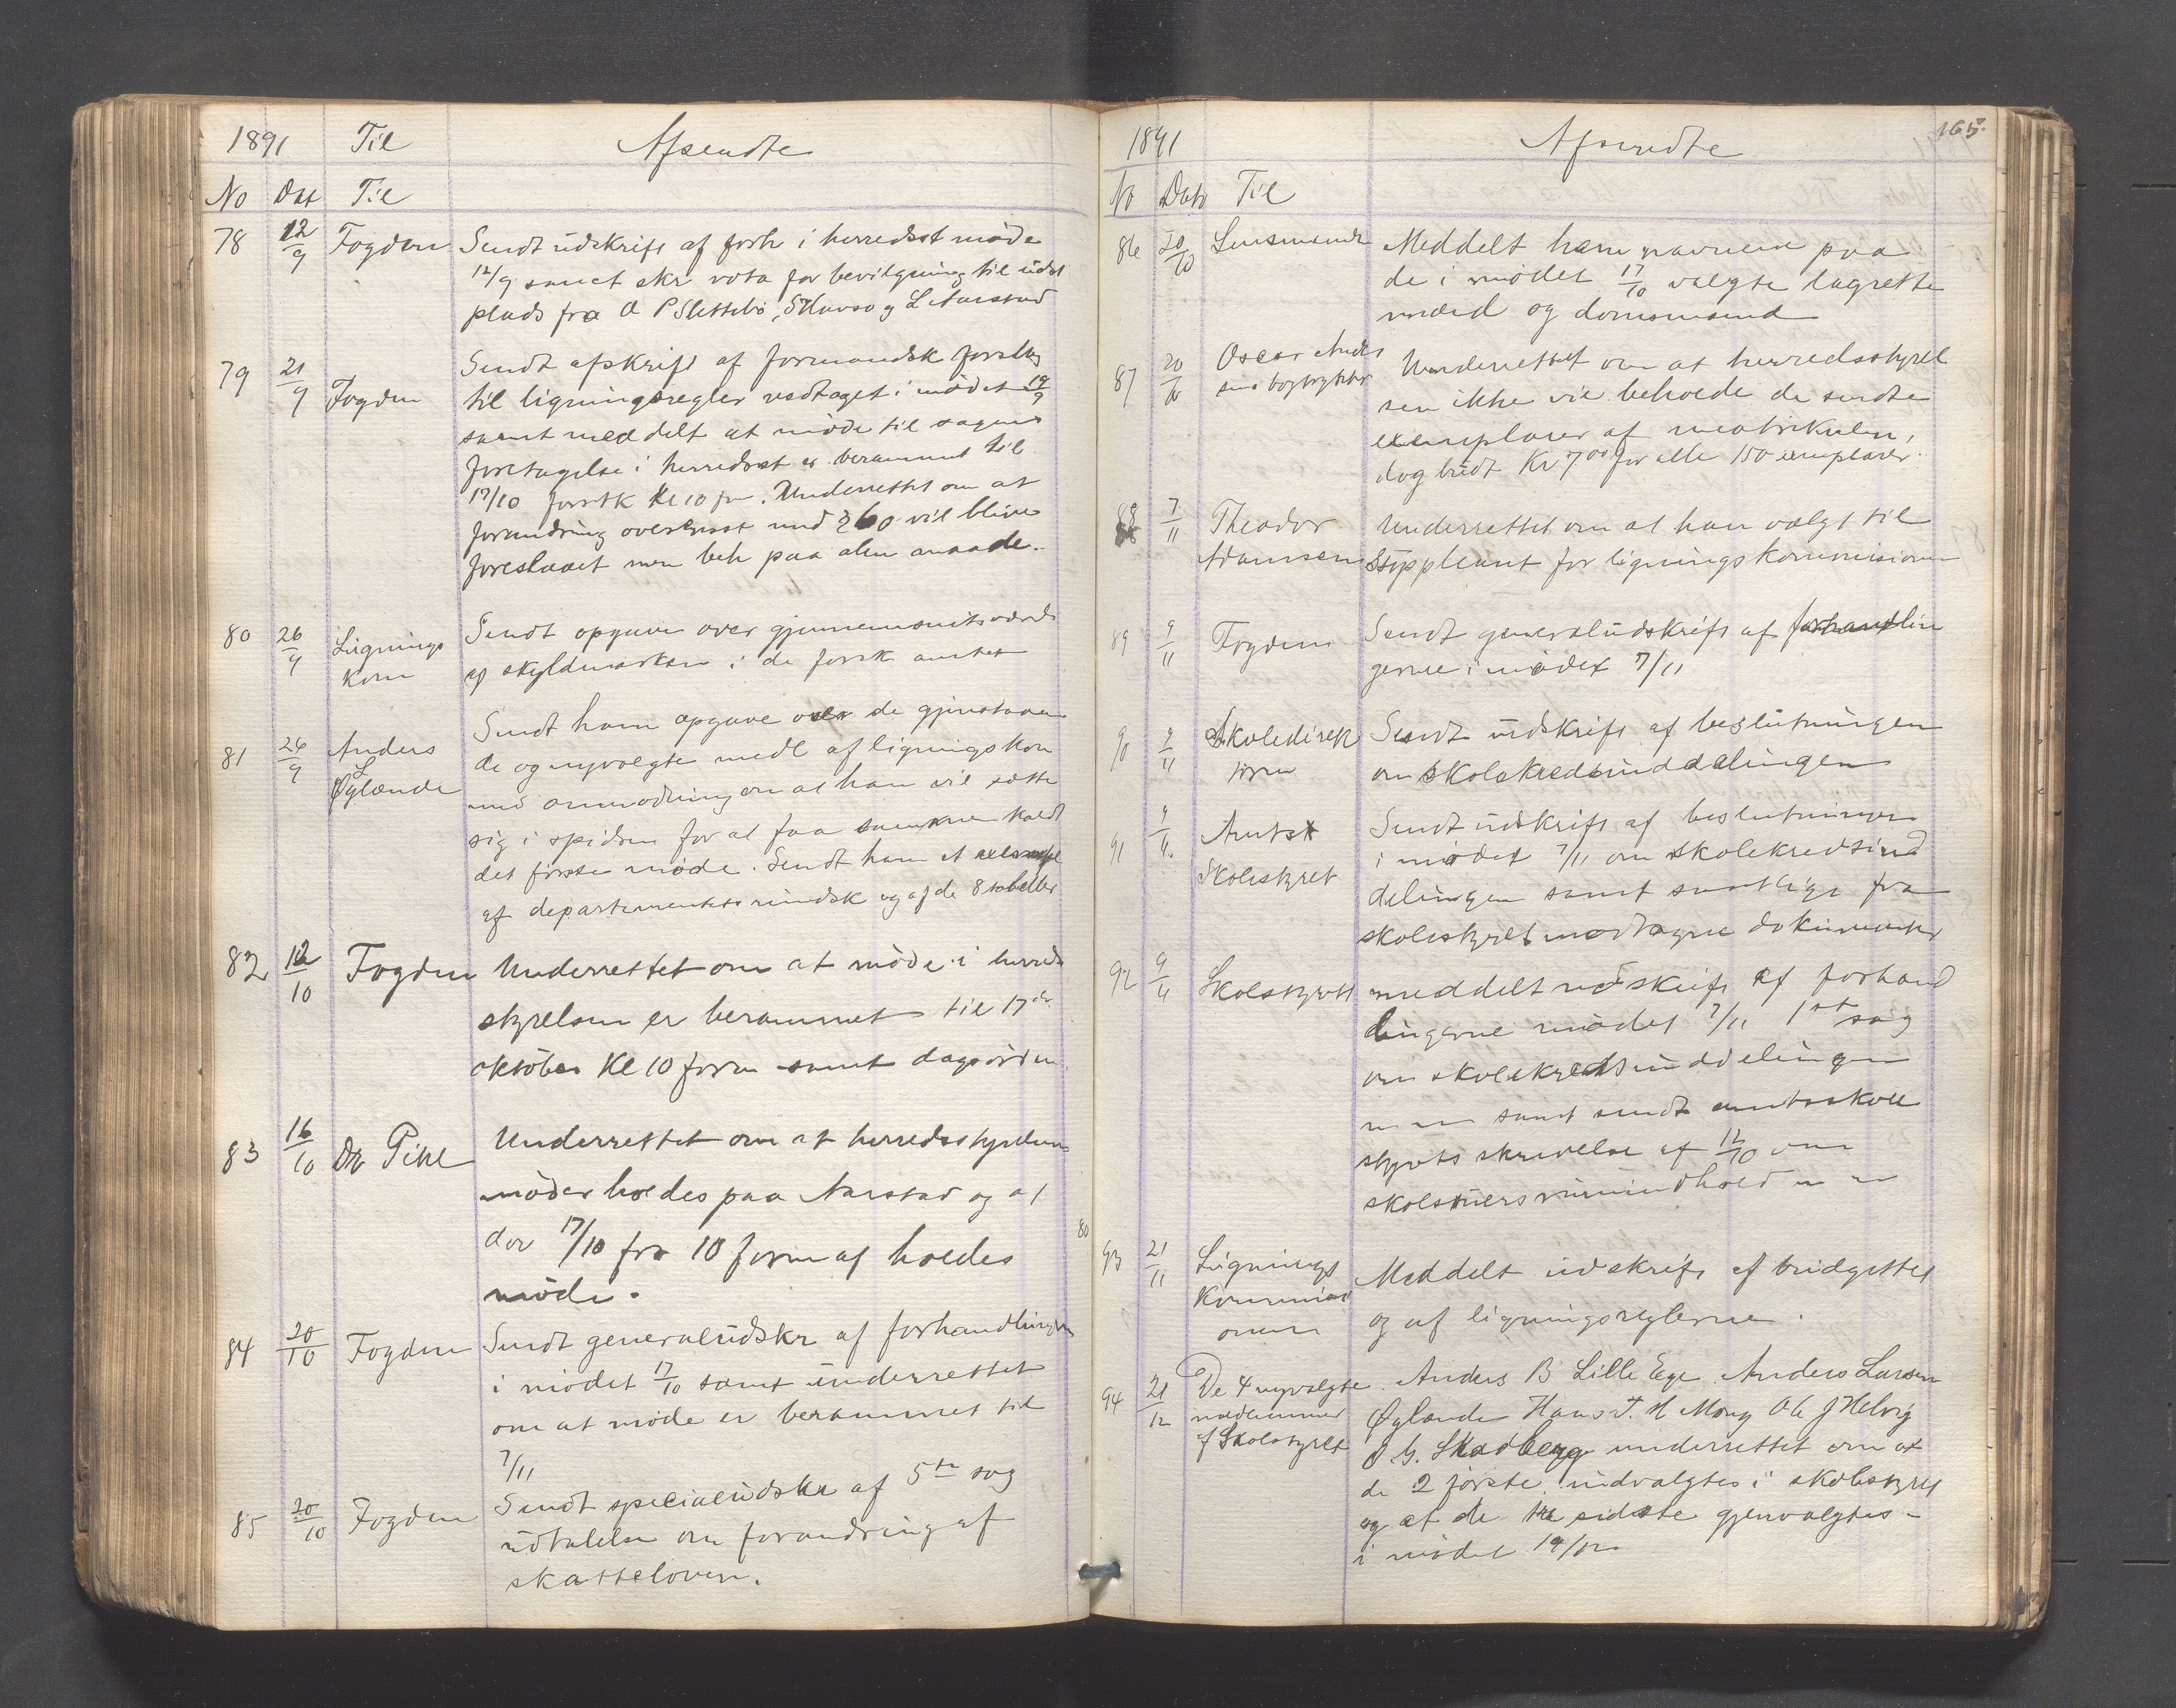 1891 Til Afsendte
No Dat Til
78 12/9 Fogden Sendt udskrift af forh i herredsst møde
12/9 samt skr vota for bevilgning til udst
plads fra O P Slettebø, S Havsø og L Aarstad
79 21/9 Fogden Sendt afskrift af formandsk forslag
til ligningsregler vedtaget i mødet 19/9
samt meddelt at møde til sagens
foretagelse i herredsst er berammet til
17/10 førstk Kl 10 fm. Underrettet om at
forandring med 260 vil blive
foreslaaet men beh paa alm maade.
80 26/9 Lignings
kom
Sendt opgave over gjennemsnitsværdi
af skyldmarken i de forsk amter
81 26/9 Anders
L
Øglænde
Sendt ham opgave over de gjenstaaen
de og nyvalgte medl af ligningskom
med anmodning om at han vil sætte
sig i spidsen for at faa sammenkaldt
det første møde. Sendt ham et exempl
af departementets rundsk og af de 8 tabeller
82 12/10 Fogden Underrettet om at møde i herreds
styrelsen er berammet til 17de
oktober Kl 10 form samt dagsorden
83 16/10 Dr Pihl Underrettet om at herredsstyrelsens
møder holdes paa Aarstad og at
der 17/10 fra 10 form af holdes
møde.
84 20/10 Fogden Sendt generaludskr af forhandlingerne
i mødet 17/10 samt underrettet
om at møde er berammet til
7/11
85 20/10 Fogden Sendt specialudskr af 5te sag
udtalelse om forandring af
skatteloven.
80
1891 Afsendte 165.
No Dato Til
86 20/10 Lensmanden Meddelt ham navnene paa
de i mødet 17/10 valgte lagrette
mænd og domsmænd
87 20/10 Oscar Ander
sens bogtrykkeri
Underrettet om at herredsstyrel
sen ikke vil beholde de sendte
exemplarer af matrikulen,
dog budt Kr 7,00 for alle 150 exemplarer.
88 7/11 Theodor
Adamsen
Underrettet om at han valgt til
Suppleant for ligningskommisionen
89 9/11 Fogden Sendt generaludskrift af forhandlin
gerne i mødet 7/11
90 9/11 Skoledirek
tøren
Sendt udskrift af beslutningen
om skolekredsinddelingen
91 9/11 Amts
Skolestyret
Sendt udskrift af beslutningen
i mødet 7/11 om skolekredsind
delingen samt samtlige fra
skolestyret modtagne dokumenter
92 9/11 Skolestyret meddelt udskrift af forhand
lingerne mødet 7/11 1ste sag
om skolekredsinddelingen
samt sendt amtsskole
styrets skrivelse af 12/10 om
93 21/11 Lignings
Kommissi
onen
Meddelt udskrift af budgettet
og af ligningsreglerne.
94 21/12 De 4 nyvalgte
medlemmer
af Skolestyret
Anders B Lille Ege. Anders Larsen
Øglænde Hans T. H Mong Ole J Helvig
O. G. Skadberg underrettet om at
de 2 første indvalgtes i skolestyret
og at de tre sidste gjenvalgtes
i mødet 19/12